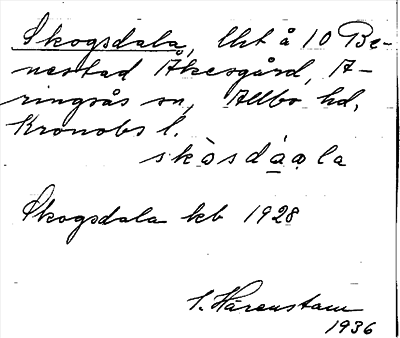 Skogsdala, lht å 10 Be-
nestad Åkesgård, A-
ringsås sn, Allbo hd,
Kronobs l.
skòsdáala
Skogsdala kb 1928
S. Härenstam
1936